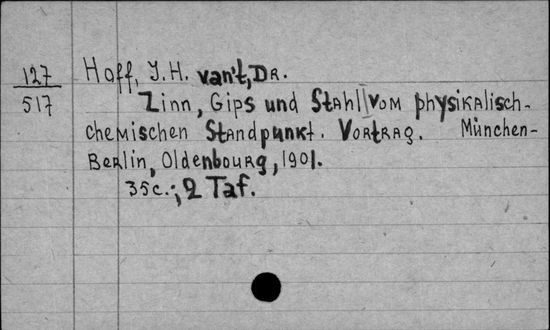 127
517
Hoff, J.H. van't, Dr.
Zinn, Gips und Stahl vom physikalisch-
chemischen Standpunkt. Vortrag. München-
Berlin, Oldenbourg, 1901.
35c.; 2 Taf.